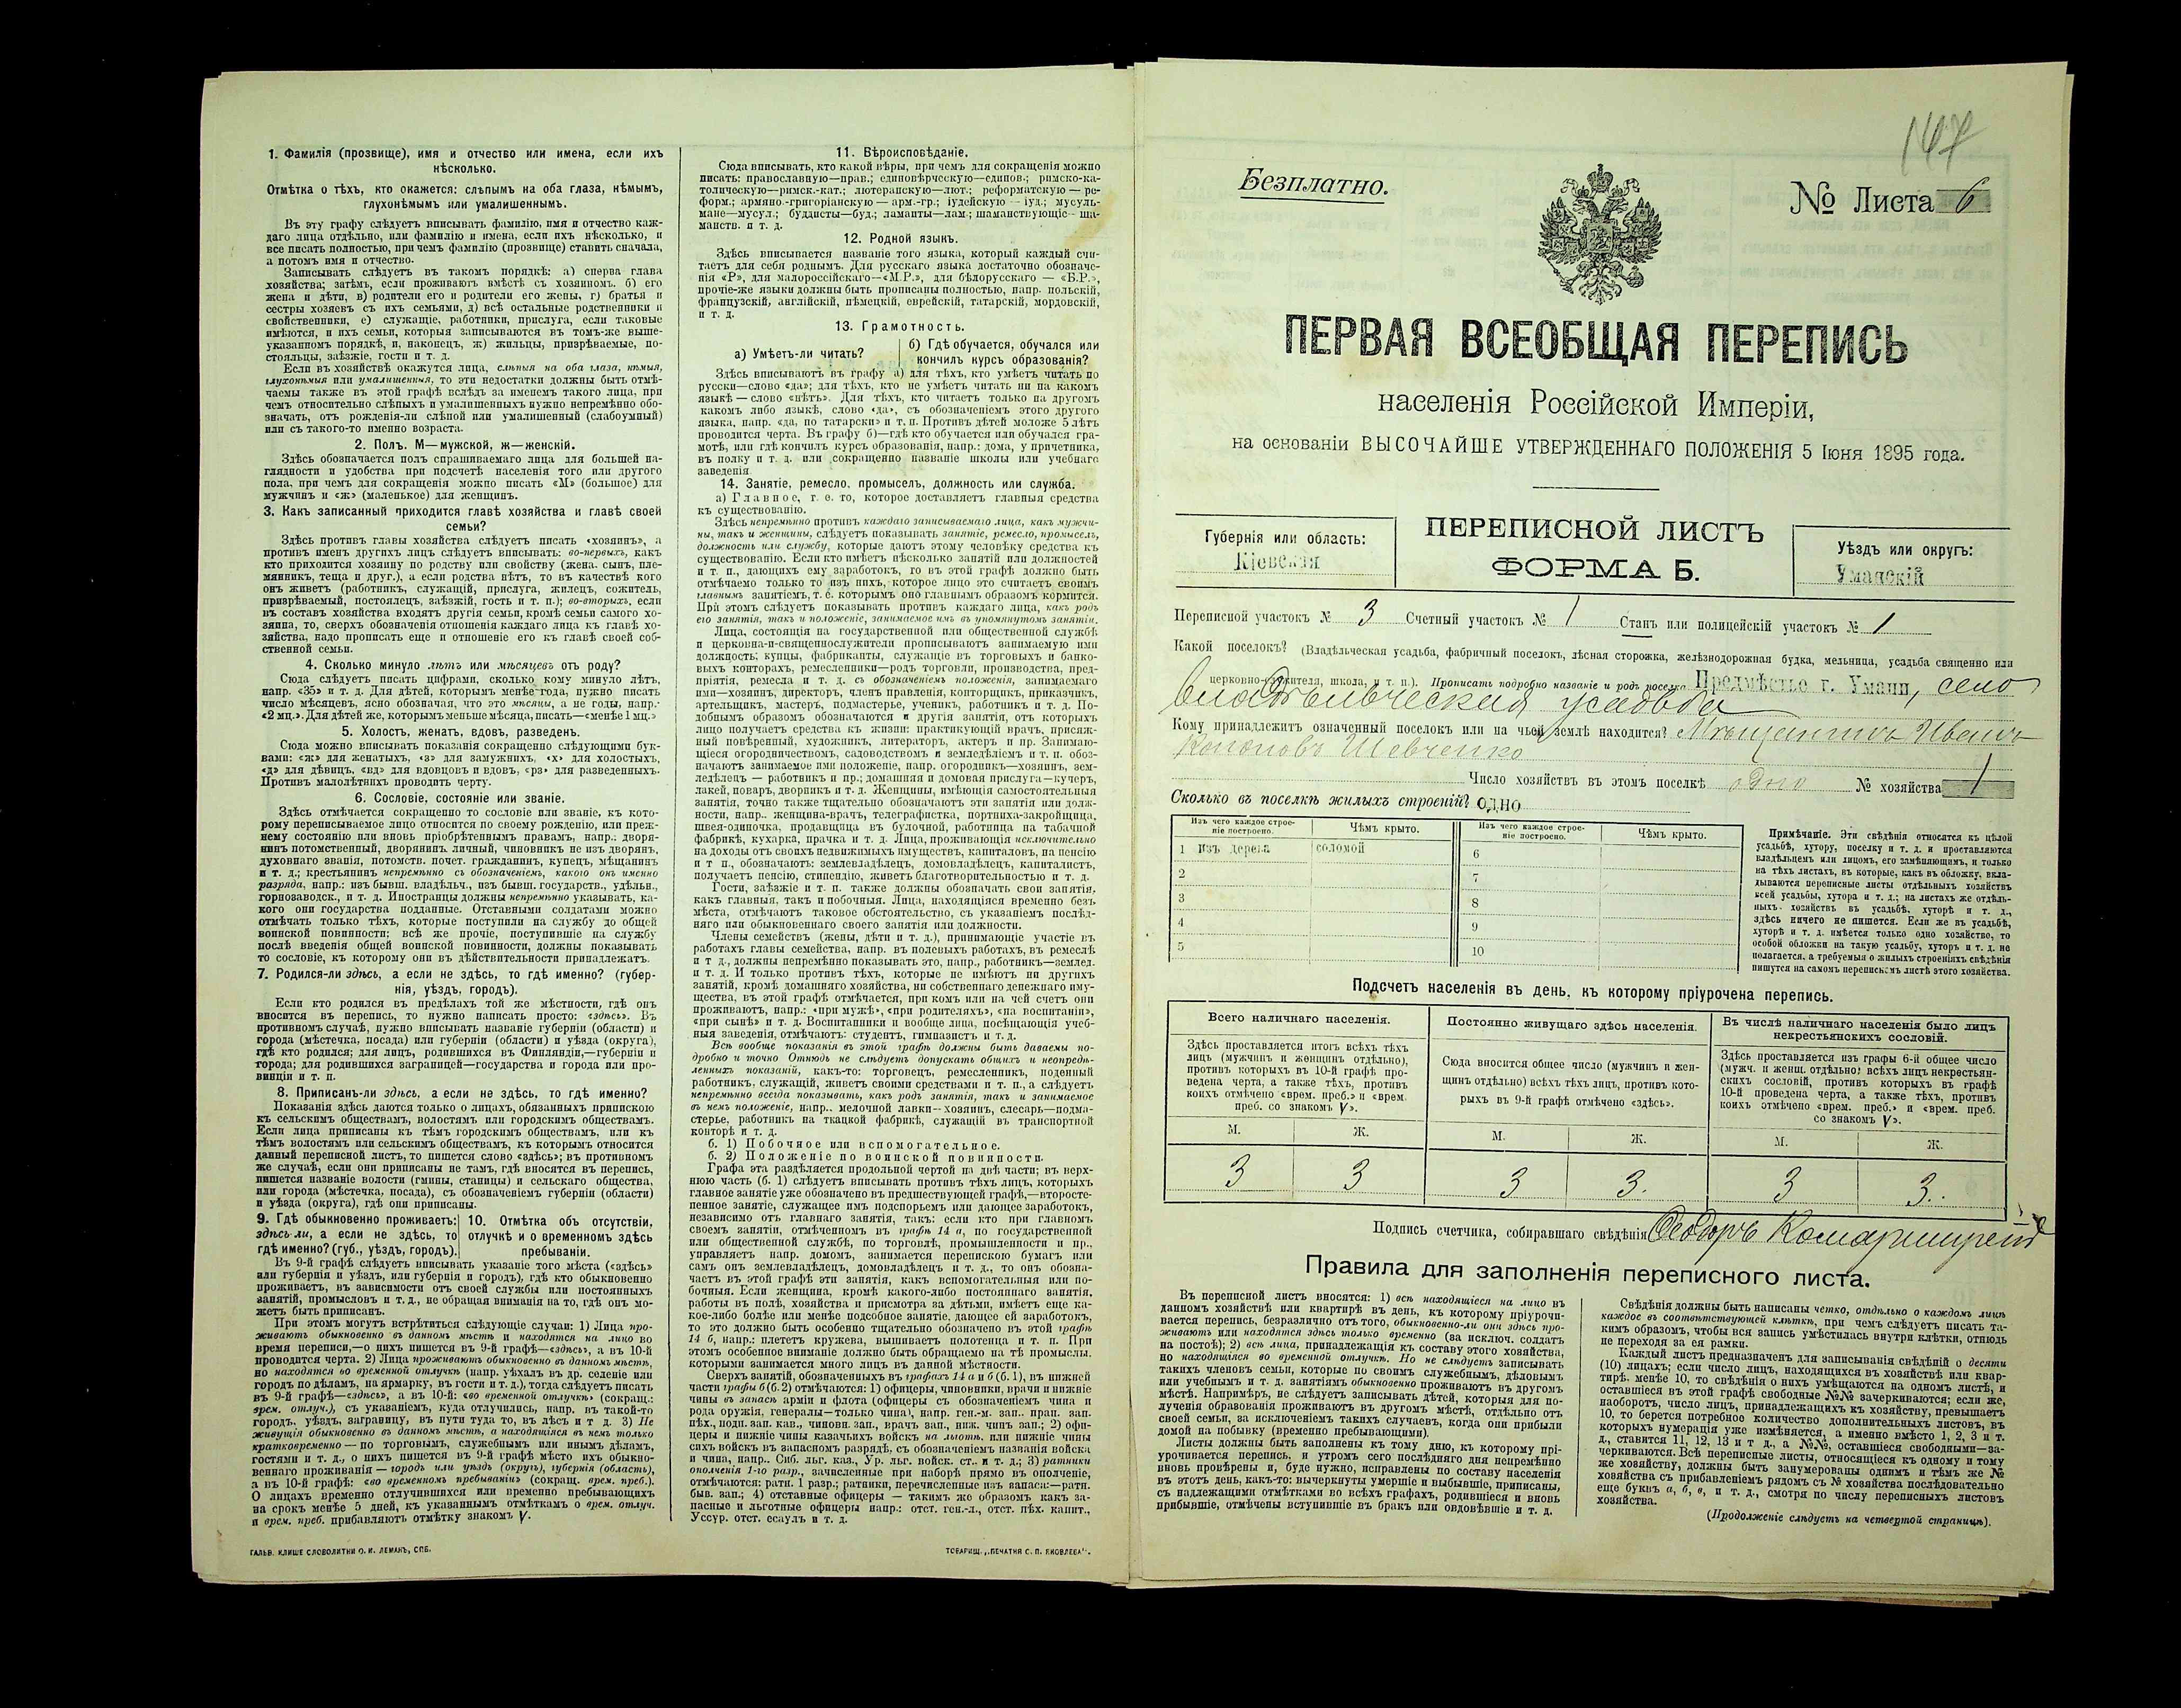 1. Фамилія (прозвище), имя и отчество или имена, если ихъ
нѣсколько.
Отмѣтка о тѣхъ, кто окажется: слѣпымъ на оба глаза, нѣмымъ,
глухонѣмымъ или умалишеннымъ.
Въ эту графу слѣдуетъ вписывать фамилію, имя и отчество каж-
даго лица отдѣльно, или фамилію и имена, если ихъ нѣсколько, и
все писать полностью, при чемъ фамилію (прозвище) ставить сначала,
а потомъ имя и отчество.
Записывать слѣдуетъ въ такомъ порядкѣ: а) сперва глава
хозяйства; затѣмъ, если проживаютъ вмѣстѣ съ хозяиномъ. б) его
жена и дѣти, в) родители его и родители его жены, г) братья и
сестры хозяевъ съ ихъ семьями, д) всѣ остальные родственники и
свойственники, е) служащіе, работники, прислуга, если таковые
имѣются, и ихъ семьи, которыя записываются въ томъ-же выше-
указанномъ порядкѣ, и, наконецъ, ж) жильцы, призрѣваемые, по-
стояльцы, заѣзжіе, гости и т. д.
Если въ хозяйствѣ окажутся лица, слѣпыя на оба глаза, нѣмыя,
глухонѣмыя или умалишенныя, то эти недостатки должны быть отмѣ-
чаемы также въ этой графѣ вслѣдъ за именемъ такого лица, при
чемъ относительно слѣпыхъ и умалишенныхъ нужно непремѣнно обо-
значать, отъ рожденія-ли слѣпой или умалишенный (слабоумный)
или съ такого-то именно возраста.
2. Полъ. М—мужской, ж—женскій.
Здѣсь обозначается полъ спрашиваемаго лица для большей на-
глядности и удобства при подсчетѣ населенія того или другого
пола, при чемъ для сокращенія можно писать «М» (большое) для
мужчинъ и «ж» (маленькое) для женщинъ.
3. Какъ записанный приходится главѣ хозяйства и главѣ своей
семьи?
Здѣсь противъ главы хозяйства слѣдуетъ писать «хозяинъ», а
противъ именъ другихъ лицъ слѣдуетъ вписывать: во-первыхъ, какъ
кто приходится хозяину по родству или свойству (жена. сынъ, пле-
мянникъ, теща и друг.), а если родства нѣтъ, то въ качествѣ кого
онъ живетъ (работникъ, служащій, прислуга, жилецъ, сожитель,
призрѣваемый, постоялецъ, заѣзжій, гость и т. п.); во-вторыхъ, если
въ составъ хозяйства входятъ другія семьи, кромѣ семьи самого хо-
зяина, то, сверхъ обозначенія отношенія каждаго лица къ главѣ хо-
зяйства, надо прописать еще и отношеніе его къ главѣ своей соб-
ственной семьи.
4. Сколько минуло лѣтъ или мѣсяцевъ отъ роду?
Сюда слѣдуетъ писать цифрами, сколько кому минуло лѣтъ,
напр. «35» и т. д. Для дѣтей, которымъ менѣе года, нужно писать
число мѣсяцевъ, ясно обозначая, что это мѣсяцы, а не годы, напр.·
«2 мц.». Для дѣтей же, которымъ меньше мѣсяца, писать—«менѣе 1 мц.»
5. Холостъ, женатъ, вдовъ, разведенъ.
Сюда можно вписывать показанія сокращенно слѣдующими бук-
вами: «ж» для женатыхъ, «з» для замужнихъ, «х» для холостыхъ,
«д» для дѣвицъ, «вд» для вдовцовъ и вдовъ, «рз» для разведенныхъ.
Противъ малолѣтнихъ проводить черту.
6. Сословіе, состояніе или званіе.
Здѣсь отмѣчается сокращенно то сословіе или званіе, къ кото-
рому переписываемое лицо относится по своему рожденію, или преж-
нему состоянію или вновь пріобрѣтеннымъ правамъ, напр.: дворя-
нинъ потомственный, дворянинъ личный, чиновникъ не изъ дворянъ,
духовнаго званія, потомств. почет. гражданинъ, купецъ, мѣщанинъ
и т. д.; крестьянинъ непремѣнно съ обозначеніемъ, какого онъ именно
разряда, напр.: изъ бывш. владѣльч., изъ бывш. государств., удѣльн.,
горнозаводск., и т. д. Иностранцы должны непремѣнно указывать, ка-
кого они государства подданные. Отставными солдатами можно
отмѣчать только тѣхъ, которые поступили на службу до общей
воинской повинности; всѣ же прочіе, поступившіе на службу
послѣ введенія общей воинской повинности, должны показывать
то сословіе, къ которому они въ дѣйствительности принадлежатъ.
7. Родился-ли здѣсь, а если не здѣсь, то гдѣ именно? (губер-
нія, уѣздъ, городъ).
Если кто родился въ предѣлахъ той же мѣстности, гдѣ онъ
вносится въ перепись, то нужно написать просто: «здѣсь». Въ
противномъ случаѣ, нужно вписывать названіе губерніи (области) и
города (мѣстечка, посада) или губерніи (области) и уѣзда (округа),
гдѣ кто родился; для лицъ, родившихся въ Финляндіи,—губерніи и
города; для родившихся заграницей—государства и города или про-
винціи и т. п.
8. Приписанъ-ли здѣсь, а если не здѣсь, то гдѣ именно?
Показанія здѣсь даются только о лицахъ, обязанныхъ припискою
къ сельскимъ обществамъ, волостямъ или городскимъ обществамъ.
Если лица приписаны къ тѣмъ городскимъ обществамъ, или къ
тѣмъ волостямъ или сельскимъ обществамъ, къ которымъ относится
данный переписной листъ, то пишется слово «здѣсь»; въ противномъ
же случаѣ, если они приписаны не тамъ, гдѣ вносятся въ перепись,
пишется названіе волости (гмины, станицы) и сельскаго общества,
или города (мѣстечка, посада), съ обозначеніемъ губерніи (области)
и уѣзда (округа), гдѣ они приписаны.
9. Гдѣ обыкновенно проживаетъ:
здѣсь ли, а если не здѣсь, то
гдѣ именно? (губ., уѣздъ, городъ).
10. Отмѣтка объ отсутствіи,
отлучкѣ и о временномъ здѣсь
пребываніи.
Въ 9-й графѣ слѣдуетъ вписывать указаніе того мѣста («здѣсь»
или губернія и уѣздъ, или губернія и городъ), гдѣ кто обыкновенно
проживаетъ, въ зависимости отъ своей службы или постоянныхъ
занятій, промысловъ и т. д., не обращая вниманія на то, гдѣ онъ мо-
жетъ быть приписанъ.
При этомъ могутъ встрѣтиться слѣдующіе случаи: 1) Лица про-
живаютъ обыкновенно въ данномъ мѣстѣ и находятся на лицо во
время переписи,—о нихъ пишется въ 9-й графѣ—«здѣсь», а въ 10-й
проводится черта. 2) Лица проживаютъ обыкновенно въ данномъ мѣстѣ,
но находятся во временной отлучкѣ (напр. уѣхалъ въ др. селеніе или
городъ по дѣламъ, на ярмарку, въ гости и т. д.), тогда слѣдуетъ писать
въ 9-й графѣ—«здѣсь», а въ 10-й: «во временной отлучкѣ» (сокращ.:
врем. отлуч.), съ указаніемъ, куда отлучились, напр. въ такой-то
городъ, уѣздъ, заграницу, въ пути туда то, въ лѣсъ и т д. 3) Не
живущія обыкновенно въ данномъ мѣстѣ, а находящіяся въ немъ только
кратковременно — по торговымъ, служебнымъ или инымъ дѣламъ,
гостями и т. д., о нихъ пишется въ 9-й графѣ мѣсто ихъ обыкно-
веннаго проживанія — городъ или уѣздъ (округъ), губернія (область),
а въ 10-й графѣ: «во временномъ пребываніи» (сокращ. врем. преб.).
О лицахъ временно отлучившихся или временно пребывающихъ
на срокъ менѣе 5 дней, къ указаннымъ отмѣткамъ о врем. отлуч.
и врем. преб. прибавляютъ отмѣтку знакомъ V.
ГАЛЬВ. КЛИШЕ СЛОВОЛИТНИ О. И. ЛЕМАНЪ, СПБ.
11. Вѣроисповѣданіе.
Сюда вписывать, кто какой вѣры, при чемъ для сокращенія можно
писать: православную—прав.; единовѣрческую—единов.; римско-ка-
толическую—римск.-кат.; лютеранскую—лют.; реформатскую — ре-
форм.; армяно.-григоріанскую — арм.-гр.; іудейскую — іуд.; мусуль-
мане—мусул.; буддисты—буд.; ламаиты—лам.; шаманствующіе— ша-
манств. и т. д.
12. Родной языкъ.
Здѣсь вписывается названіе того языка, который каждый счи-
таетъ для себя роднымъ. Для русскаго языка достаточно обозначе-
нія «Р», для малороссійскаго—«М.Р.», для бѣлорусскаго — «Б.Р.»,
прочіе-же языки должны быть прописаны полностью, напр. польскій,
французскій, англійскій, нѣмецкій, еврейскій, татарскій, мордовскій,
и т. д.
13. Грамотность.
а) Умѣетъ-ли читать?
б) Гдѣ обучается, обучался или
кончилъ курсъ образованія?
Здѣсь вписываютъ въ графу а) для тѣхъ, кто умѣетъ читать по
русски—слово «да»; для тѣхъ, кто не умѣетъ читать ни на какомъ
языкѣ — слово «нѣтъ». Для тѣхъ, кто читаетъ только на другомъ
какомъ либо языкѣ, слово «да», съ обозначеніемъ этого другого
языка, напр. «да, по татарски» и т. п. Противъ дѣтей моложе 5 лѣтъ
проводится черта. Въ графу б)—гдѣ кто обучается или обучался гра-
мотѣ, или гдѣ кончилъ курсъ образованія, напр.: дома, у причетника,
въ полку и т. д. или сокращенно названіе школы или учебнаго
заведенія
14. Занятіе, ремесло, промыселъ, должность или служба.
а) Главное, т. е. то, которое доставляетъ главныя средства
къ существованію.
Здѣсь непремѣнно противъ каждаго записываемаго лица, какъ мужчи-
ны, такъ и женщины, слѣдуетъ показывать занятіе, ремесло, промыселъ,
должность или службу, которые даютъ этому человѣку средства къ
существованію. Если кто имѣетъ нѣсколько занятій или должностей
и т. п., дающихъ ему заработокъ, то въ этой графѣ должно быть
отмѣчаемо только то изъ нихъ, которое лицо это считаетъ своимъ
главнымъ занятіемъ, т. е. которымъ оно главнымъ образомъ кормится.
При этомъ слѣдуетъ показывать противъ каждаго лица, какъ родъ
его занятія, такъ и положеніе, занимаемое имъ въ упомянутомъ занятіи.
Лица, состоящія на государственной или общественной службѣ
и церковно-и-священнослужители прописываютъ занимаемую ими
должность; купцы, фабриканты, служащіе въ торговыхъ и банко-
выхъ конторахъ, ремесленники—родъ торговли, производства, пред-
пріятія, ремесла и т. д. съ обозначеніемъ положенія, занимаемаго
ими—хозяинъ, директоръ, членъ правленія, конторщикъ, приказчикъ,
артельщикъ, мастеръ, подмастерье, ученикъ, работникъ и т. д. По-
добнымъ образомъ обозначаются и другія занятія, отъ которыхъ
лицо получаетъ средства къ жизни: практикующій врачъ, присяж-
ный повѣренный, художникъ, литераторъ, актеръ и пр. Занимаю-
щіеся огородничествомъ, садоводствомъ и земледѣліемъ и т. п. обоз-
начаютъ занимаемое ими положеніе, напр. огородникъ—хозяинъ, зем-
ледѣлецъ — работникъ и пр.; домашняя и домовая прислуга—кучеръ,
лакей, поваръ, дворникъ и т. д. Женщины, имѣющія самостоятельныя
занятія, точно также тщательно обозначаютъ эти занятія или долж-
ности, напр.. женщина-врачъ, телеграфистка, портниха-закройщица,
швея-одиночка, продавщица въ булочной, работница на табачной
фабрикѣ, кухарка, прачка и т. д. Лица, проживающія исключительно
на доходы отъ своихъ недвижимыхъ имуществъ, капиталовъ, на пенсію
и т п., обозначаютъ: землевладѣлецъ, домовладѣлецъ, капиталистъ,
получаетъ пенсію, стипендію, живетъ благотворительностью и т. д.
Гости, заѣзжіе и т. п. также должны обозначать свои занятія,
какъ главныя, такъ и побочныя. Лица, находящіяся временно безъ
мѣста, отмѣчаютъ таковое обстоятельство, съ указаніемъ послѣд-
няго или обыкновеннаго своего занятія или должности.
Члены семействъ (жены, дѣти и т. д.), принимающіе участіе въ
работахъ главы семейства, напр. въ полевыхъ работахъ, въ ремеслѣ
и т д., должны непремѣнно показывать это, напр., работникъ—землед.
и т. д. И только противъ тѣхъ, которые не имѣютъ ни другихъ
занятій, кромѣ домашняго хозяйства, ни собственнаго денежнаго иму-
щества, въ этой графѣ отмѣчается, при комъ или на чей счетъ они
проживаютъ, напр.: «при мужѣ», «при родителяхъ», «на воспитаніи»,
«при сынѣ» и т. д. Воспитанники и вообще лица, посѣщающія учеб-
ныя заведенія, отмѣчаютъ: студентъ, гимназистъ и т. д.
Всѣ вообще показанія въ этой графѣ должны быть даваемы по-
дробно и точно Отнюдь не слѣдуетъ допускать общихъ и неопредѣ-
ленныхъ показаній, какъ-то: торговецъ, ремесленникъ, поденный
работникъ, служащій, живетъ своими средствами и т. п., а слѣдуетъ
непремѣнно всегда показывать, какъ родъ занятія, такъ и занимаемое
въ немъ положеніе, напр.. мелочной лавки—хозяинъ, слесарь—подма-
стерье, работникъ на ткацкой фабрикѣ, служащій въ транспортной
конторѣ и т. д.
б. 1) Побочное или вспомогательное.
б. 2) Положеніе по воинской повинности.
Графа эта раздѣляется продольной чертой на двѣ части; въ верх-
нюю часть (б. 1) слѣдуетъ вписывать противъ тѣхъ лицъ, которыхъ
главное занятіе уже обозначено въ предшествующей графѣ,—второсте-
пенное занятіе, служащее имъ подспорьемъ или дающее заработокъ,
независимо отъ главнаго занятія, такъ: если кто при главномъ
своемъ занятіи, отмѣченномъ въ графѣ 14 а, по государственной
или общественной службѣ, по торговлѣ, промышленности и пр.,
управляетъ напр. домомъ, занимается перепискою бумагъ или
самъ онъ землевладѣлецъ, домовладѣлецъ и т. д., то онъ обозна-
чаетъ въ этой графѣ эти занятія, какъ вспомогательныя или по-
бочныя. Если женщина, кромѣ какого-либо постояннаго занятія,
работы въ полѣ, хозяйства и присмотра за дѣтьми, имѣетъ еще ка-
кое-либо болѣе или менѣе подсобное занятіе, дающее ей заработокъ,
то это должно быть особенно тщательно обозначено въ этой графѣ
14 б, напр.: плететъ кружева, вышиваетъ полотенца и т. п. При
этомъ особенное вниманіе должно быть обращаемо на тѣ промыслы,
которыми занимается много лицъ въ данной мѣстности.
Сверхъ занятій, обозначенныхъ въ графахъ 14 а и б (б. 1), въ нижней
части графы б (б. 2) отмѣчаются: 1) офицеры, чиновники, врачи и нижніе
чины въ запасѣ арміи и флота (офицеры съ обозначеніемъ чина и
рода оружія, генералы—только чина), напр. ген-м. зап.. прап. зап.
пѣх., подп. зап. кав., чиновн. зап., врачъ зап., ниж. чинъ зап.; 2) офи-
церы и нижніе чины казачьихъ войскъ на льготѣ, или нижніе чины
сихъ войскъ въ запасномъ разрядѣ, съ обозначеніемъ названія войска
и чина, напр.. Сиб. льг. каз., Ур. льг. войск. ст.. и т. д.; 3) ратники
ополченія 1-го разр., зачисленные при наборѣ прямо въ ополченіе,
отмѣчаются: ратн. 1 разр.; ратники, перечисленные изъ запаса:—ратн.
быв. зап.; 4) отставные офицеры — такимъ же образомъ какъ за-
пасные и льготные офицеры напр.: отст. ген.-л., отст. пѣх. капит.,
Уссур. отст. есаулъ и т. д.
ТОВАРИЩ. „ПЕЧАТНЯ С. П. ЯКОВЛЕВА“.
147
Безплатно.
№ Листа 6
ПЕРВАЯ ВСЕОБЩАЯ ПЕРЕПИСЬ
населенія Россійской Имперіи,
на основаніи ВЫСОЧАЙШЕ УТВЕРЖДЕННАГО ПОЛОЖЕНІЯ 5 Іюня 1895 года.
Губернія или область:
Кіевская
ПЕРЕПИСНОЙ ЛИСТЪ
ФОРМА Б.
Уѣздъ или округъ:
Уманскій
Переписной участокъ № 3 Счетный участокъ № 1 Станъ или полицейскій участокъ № 1
Какой поселокъ? (Владѣльческая усадьба, фабричный поселокъ, лѣсная сторожка, желѣзнодорожная будка, мельница, усадьба священно или
церковно-служителя, школа, и т. п.). Прописать подробно названіе и родъ поселка Предмѣстье г. Умани, село
Владѣльческая усадьба
Кому принадлежитъ означенный поселокъ или на чьей землѣ находится? Мѣщанинъ Иванъ
Кононовъ Шевченко
Число хозяйствъ въ этомъ поселкѣ одно № хозяйства 1
Сколько въ поселкѣ жилыхъ строеній? одно
Изъ чего каждое строе-
ніе построено.
Чѣмъ крыто.
Изъ чего каждое строе-
ніе построено.
Чѣмъ крыто.
1 Изъ дерева соломой 6
2 7
3 8
4 9
5 10
Примѣчаніе. Эти свѣдѣнія относятся къ цѣлой
усадьбѣ, хутору, поселку и т. д. и проставляются
владѣльцемъ или лицомъ, его замѣняющимъ, и только
на тѣхъ листахъ, въ которые, какъ въ обложку, вкла-
дываются переписные листы отдѣльныхъ хозяйствъ
всей усадьбы, хутора и т. д.; на листахъ же отдѣль-
ныхъ хозяйствъ въ усадьбѣ, хуторѣ и т. д.,
здѣсь ничего не пишется. Если же въ усадьбѣ,
хуторѣ и т. д. имѣется только одно хозяйство, то
особой обложки на такую усадьбу, хуторъ и т. д. не
полагается, а требуемыя о жилыхъ строеніяхъ свѣдѣнія
пишутся на самомъ переписномъ листѣ этого хозяйства.
Подсчетъ населенія въ день, къ которому пріурочена перепись.
Всего наличнаго населенія.
Здѣсь проставляется итогъ всѣхъ тѣхъ
лицъ (мужчинъ и женщинъ отдѣльно),
противъ которыхъ въ 10-й графѣ про-
ведена черта, а также тѣхъ, противъ
коихъ отмѣчено «врем. преб.» и «врем.
преб. со знакомъ V».
Постоянно живущаго здѣсь населенія.
Сюда вносится общее число (мужчинъ и жен-
щинъ отдѣльно) всѣхъ тѣхъ лицъ, противъ кото-
рыхъ въ 9-й графѣ отмѣчено «здѣсь».
Въ числѣ наличнаго населенія было лицъ
некрестьянскихъ сословій.
Здѣсь проставляется изъ графы 6-й общее число
(мужч. и женщ. отдѣльно) всѣхъ лицъ некрестьян-
скихъ сословій, противъ которыхъ въ графѣ
10-й проведена черта, а также тѣхъ, противъ
коихъ отмѣчено «врем. преб.» и «врем. преб.
со знакомъ V».
М. Ж. М. Ж. М. Ж.
3 3 3 3. 3 3..
Подпись счетчика, собиравшаго свѣдѣнія Ѳеодоръ
Правила для заполненія переписного листа.
Въ переписной листъ вносятся: 1) всѣ находящіеся на лицо въ
данномъ хозяйствѣ или квартирѣ въ день, къ которому пріурочи-
вается перепись, безразлично отъ того, обыкновенно-ли они здѣсь про-
живаютъ или находятся здѣсь только временно (за исключ. солдатъ
на постоѣ); 2) всѣ лица, принадлежащія къ составу этого хозяйства,
но находящіяся во временной отлучкѣ. Но не слѣдуетъ записывать
такихъ членовъ семьи, которые по своимъ служебнымъ, дѣловымъ
или учебнымъ и т. д. занятіямъ обыкновенно проживаютъ въ другомъ
мѣстѣ. Напримѣръ, не слѣдуетъ записывать дѣтей, которыя для по-
лученія образованія проживаютъ въ другомъ мѣстѣ, отдѣльно отъ
своей семьи, за исключеніемъ такихъ случаевъ, когда они прибыли
домой на побывку (временно пребывающими).
Листы должны быть заполнены къ тому дню, къ которому прі-
урочивается перепись, и утромъ сего послѣдняго дня непремѣнно
вновь провѣрены и, буде нужно, исправлены по составу населенія
въ этотъ день, какъ-то: вычеркнуты умершіе и выбывшіе, приписаны,
съ надлежащими отмѣтками во всѣхъ графахъ, родившіеся и вновь
прибывшіе, отмѣчены вступившіе въ бракъ или овдовѣвшіе и т. д.
Свѣдѣнія должны быть написаны четко, отдѣльно о каждомъ лицѣ
каждое въ соотвѣтствующей клѣткѣ, при чемъ слѣдуетъ писать та-
кимъ образомъ, чтобы вся запись умѣстилась внутри клѣтки, отнюдь
не переходя за ея рамки.
Каждый листъ предназначенъ для записыванія свѣдѣній о десяти
(10) лицахъ; если число лицъ, находящихся въ хозяйствѣ или квар-
тирѣ. менѣе 10, то свѣдѣнія о нихъ умѣщаются на одномъ листѣ, и
оставшіеся въ этой графѣ свободные №№ зачеркиваются; если же,
наоборотъ, число лицъ, принадлежащихъ къ хозяйству, превышаетъ
10, то берется потребное количество дополнительныхъ листовъ, въ
которыхъ нумерація уже измѣняется, а именно вмѣсто 1, 2, 3 и т.
д., ставится 11, 12, 13 и т д., а №№, оставшіеся свободными—за-
черкиваются. Всѣ переписные листы, относящіеся къ одному и тому
же хозяйству, должны быть занумерованы однимъ и тѣмъ же №
хозяйства съ прибавленіемъ рядомъ съ № хозяйства послѣдовательно
еще буквъ а, б, в, и т. д., смотря по числу переписныхъ листовъ
хозяйства.
(Продолженіе слѣдуетъ на четвертой страницѣ).